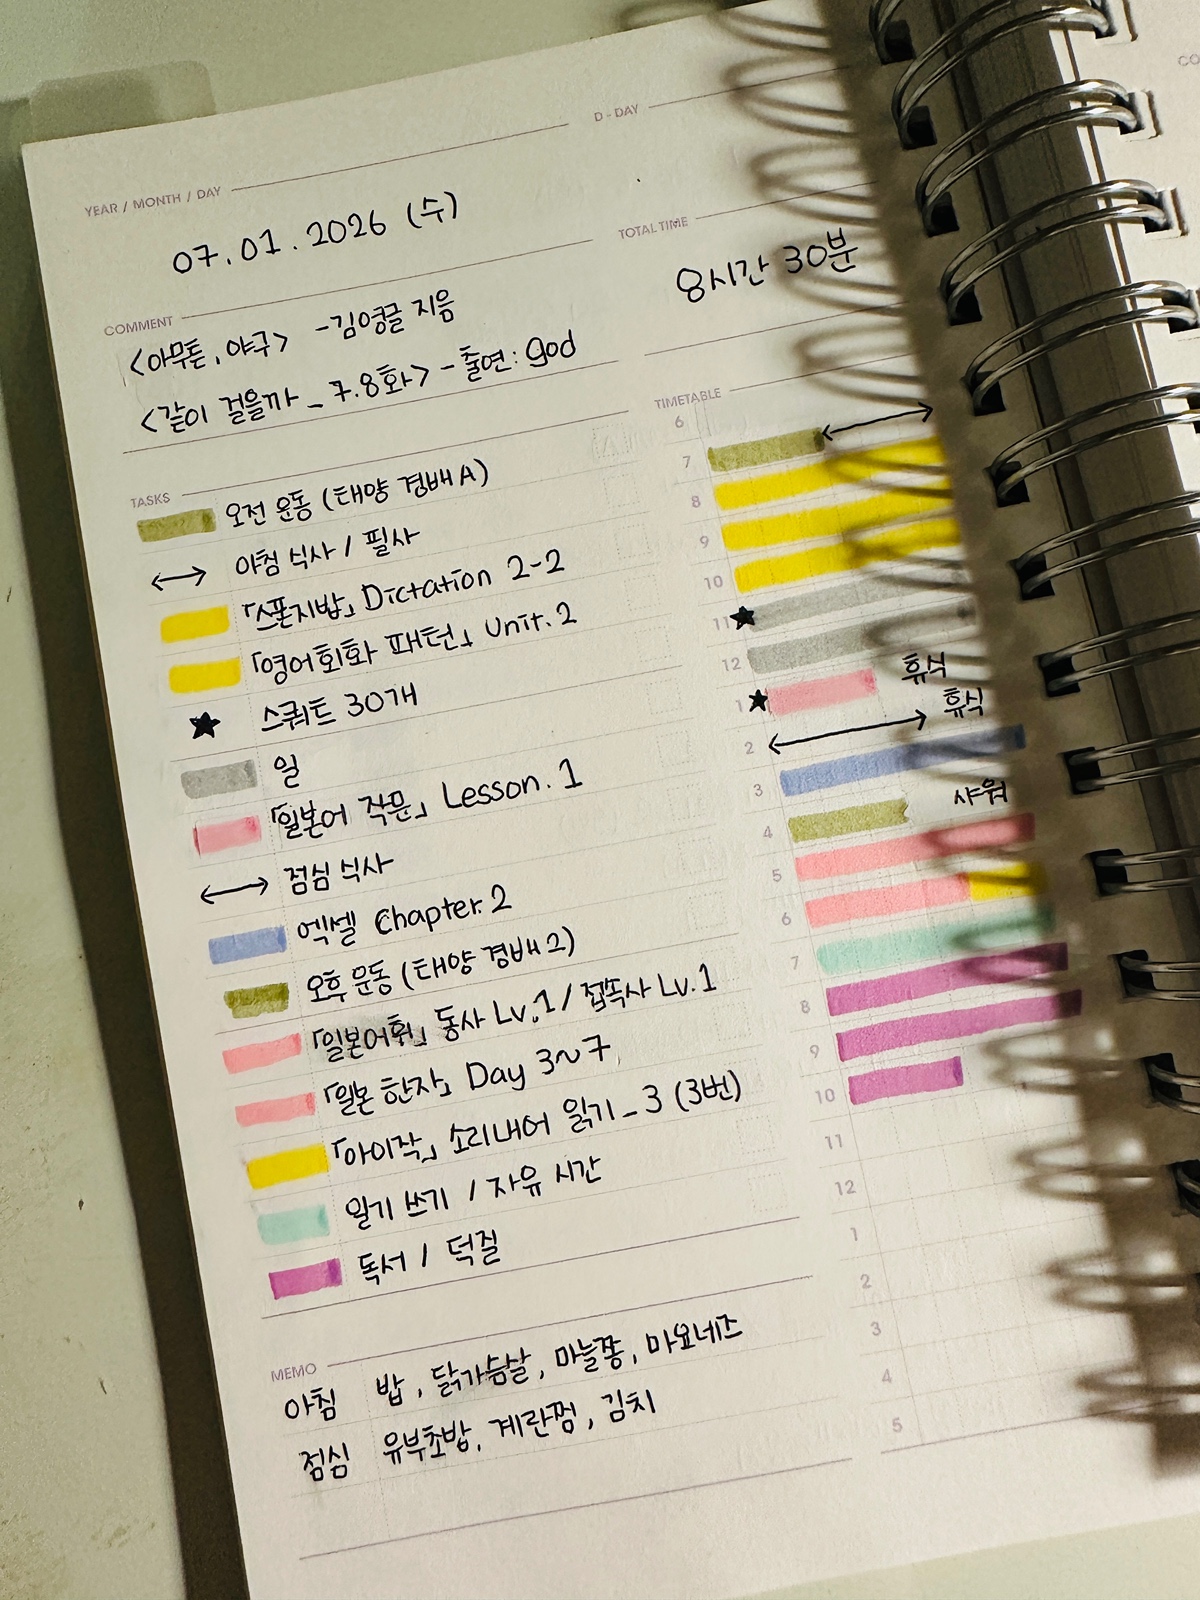 YEAR / MONTH / DAY
D-DAY
07.01.2026 (수)
TOTAL TIME
8시간 30분
COMMENT
<아무튼, 야구> -김영글 지음
<같이 걸을까 _ 7.8화> - 출연: god
TASKS
오전 운동 (태양 경배 A)
아침 식사 / 필사
「스폰지밥」 Dictation 2-2
「영어회화 패턴」 Unit. 2
스쿼트 30개
일
「일본어 작문」 Lesson. 1
점심 식사
엑셀 Chapter. 2
오후 운동 (태양 경배 2)
「일본어휘」 동사 Lv.1 / 접속사 Lv.1
「일본 한자」 Day 3~7
「아이작」 소리내어 읽기 _ 3 (3번)
일기 쓰기 / 자유 시간
독서 / 덕질
TIMETABLE
6
7
8
9
10
11
12
휴식
1
휴식
2
3
샤워
4
5
6
7
8
9
10
11
12
1
2
3
4
5
MEMO
아침 밥, 닭가슴살, 마늘쫑, 마요네즈
점심 유부초밥, 계란찜, 김치